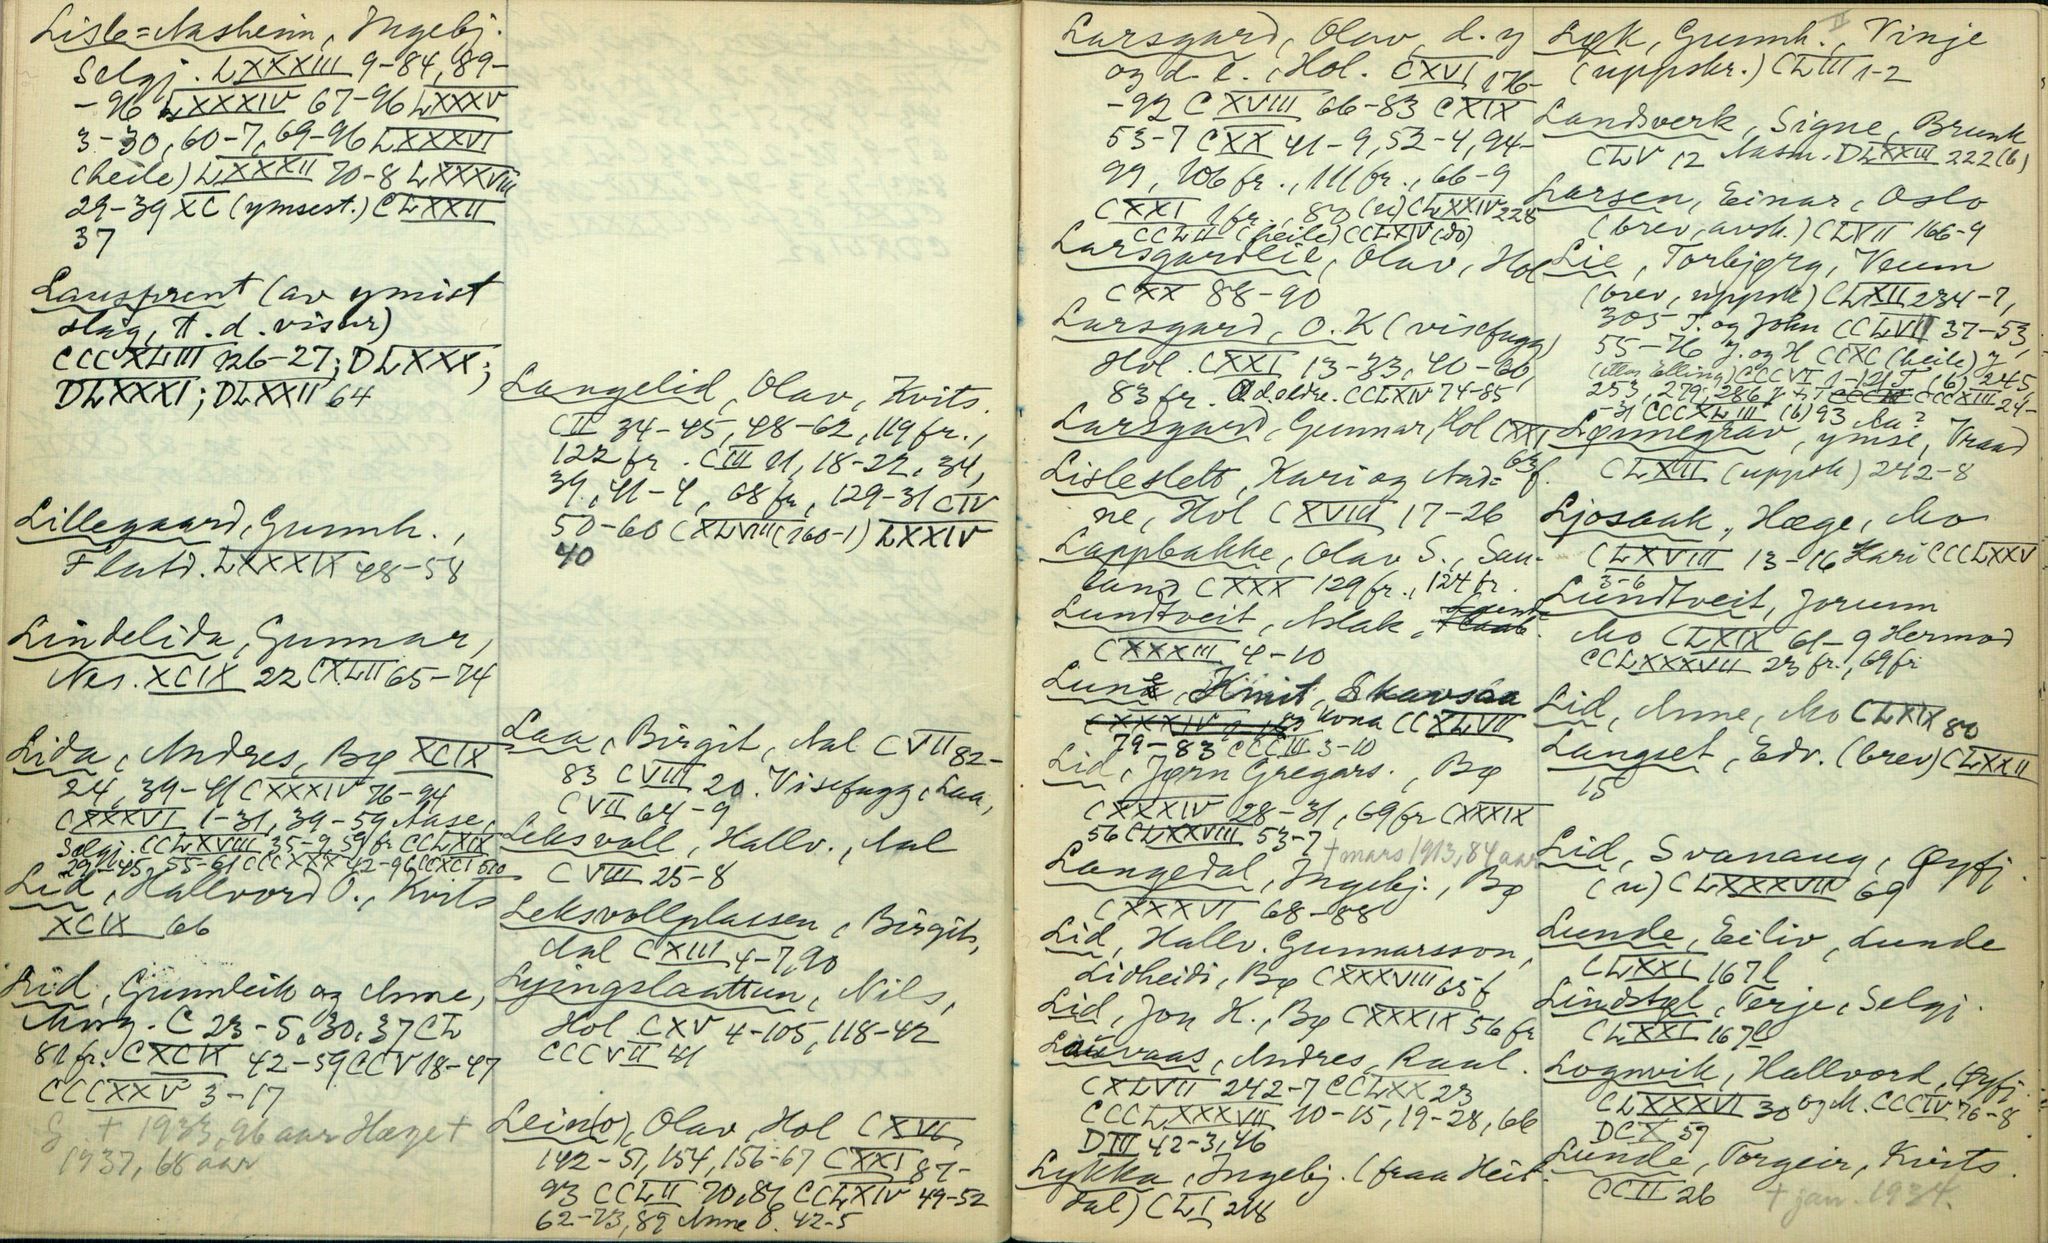 Lisle=Nasheim, Ingebj.
Selgj. LXXXIII 9-84, 89-
-96 LXXXIV 67-96 LXXXV
3-30, 60-7, 69-96 LXXXVI
(heile) LXXXII 70-8 LXXXVIII
29-39 XC (ymsest.) CLXXII
37
Lausprent (av ymist
slag, t. d. visur)
CCCXLIII 126-27; DLXXX;
DLXXXI; DLXXII 64
Lillegaard, Gunnh.,
Flatd. LXXXIX 48-58
Lindelida, Gunnar,
Nes. XCIX 22 CXLII 65-74
Lida, Andres, Bø XCIX
24, 39-41 CXXXIV 76-94
CXXXVI 1-31, 39-59 Aase,
Selgj. CCLXVIII 35-9, 59 fr CCLXIX
29-45, 55-61 CCCXXX 42-96 CCXCI 510
Lid, Hallvord O., Kvits
XCIX 66
Lid, Gunnleik og Anne,
C 23-5, 30, 37 CL
81 fr. CXCIX 42-59 CCV 18-47
CCCXXV 3-17
G + 1933, 96 aar Hæge +
1937, 68 aar
Langelid, Olav, Kvits.
CII 34-45, 48-62, 119 fr.,
122 fr. CIII 11, 18-22, 34,
39, 41-4, 68 fr, 129-31 CIV
50-60 CXLVIII (160-1) LXXIV
40
Laa, Birgit, Aal CVII 82-
83 CVIII 20. Visefugg, Laa,
CVII 64-9
Leksvoll, Hallv., Aal
CVIII 25-8
Leksvollplassen, Birgit,
Aal CXIII 4-7, 90
Lyingslaattun, Nils,
Hol CXV 4-105, 118-42
CCCVII 41
Lein(o), Olav, Hol CXVI
142-51, 154, 156-67 CXXI 87-
93 CCLII 70, 86 CCLXIV 49-52
62-73, 89 Anne O. 42-5
Larsgard, Olav, d. y
og d. e., Hol. CXVI 176-
-92 CXVIII 66-83 CXIX
53-7 CXX 41-9, 52-4, 94-
99, 106 fr., 111 fr., 66-9
CXXI 1 fr., 80 (u) CLXXIV 228
CCLII (heile) CCLXIV (do)
Larsgardlie, Olav, Hol
CXX 88-90
Larsgard, O. K (visefugg)
Hol. CXXI 13-33, 40-60,
83 fr. O d. eldre. CCLXIV 74-85
Larsgard, Gunnar, Hol CXXI
63 f.
Lisleslett, Kari og And=
ne, Hol CXVIII 17-26
Lappbakke, Olav S., Sau-
land CXXX 129 fr., 124 fr.
Lundtveit, Aslak,
CXXXIII 4-10
Lund, Knut, Skavsaa
kona CCXLVII
79-83 CCCIII 3-10
Lid, Jørn Gregars., Bø
CXXXIV 28-31, 69 fr CXXXIX
56 CLXXVIII 53-7
+ mars 1913, 84 aar
Langedal, Ingebj., Bø
CXXXVI 68-88
Lid, Hallv. Gunnarsson,
Lidheidi, Bø CXXXVIII 65 f
Lid, Jon H., Bø CXXXIX 56 fr
Lauvaas, Andres, Raul.
CXLVII 242-7 CCLXX 23
CCCLXXXVII 10-15, 19-28, 66
DIII 42-3, 46
Lykka, Ingebj. (fraa Heit-
dal) CLI 218
Løk, Gunnh. II, Vinje
(uppskr.) CLIII 1-2
Landsverk, Signe, Brunk
CLV 12 Aasm. DLXXIII 222 (6)
Larsen, Einar, Oslo
(brev, avsk.) CLVII 166-9
Lie, Torbjørg, Veum
(brev, uppsk) CLXII 234-7,
305 T. og John CCLVII 37-53,
55-76 J. og H CCXC (heile) J
CCCVI 1-121 T (6) 245,
253, 279, 286 CCCXIII 24-
-31 CCCXLIII (6) 93 Aa?
Lønnegrav, ymse, Vraad
CLXII (uppsk) 242-8
Ljosaak, Hæge, Mo
CLXVIII 13-16 Kari CCCLXXV
3-6
Lundtveit, Jorunn
Mo CLXIX 61-9 Hermod
CCLXXXVII 23 fr., 69 fr
Lid, Anne, Mo CLXIX 80
Langset, Edv. (brev) CLXXII
15
Lid, Svanaug, Øyfj.
(u) CLXXXVII 69
Lunde, Eiliv, Lunde
CLXXI 167 l
Lindstøl, Terje, Selgj.
CLXXI 167 l
Lognvik, Hallvord, Øyfj.
CLXXXVI 30 og M. CCCIV 76-8
DCX 59
Lunde, Torgeir, Kvits.
CCII 26
+ jan. 1934.